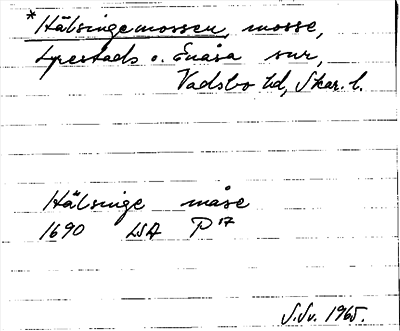 *Hälsingemossen, mosse,
Lyrestads o. Enåsa snr,
Vadsbo hd, Skar. l.
Hälsinge måse
1690 LSA P17
S.Sv. 1965.